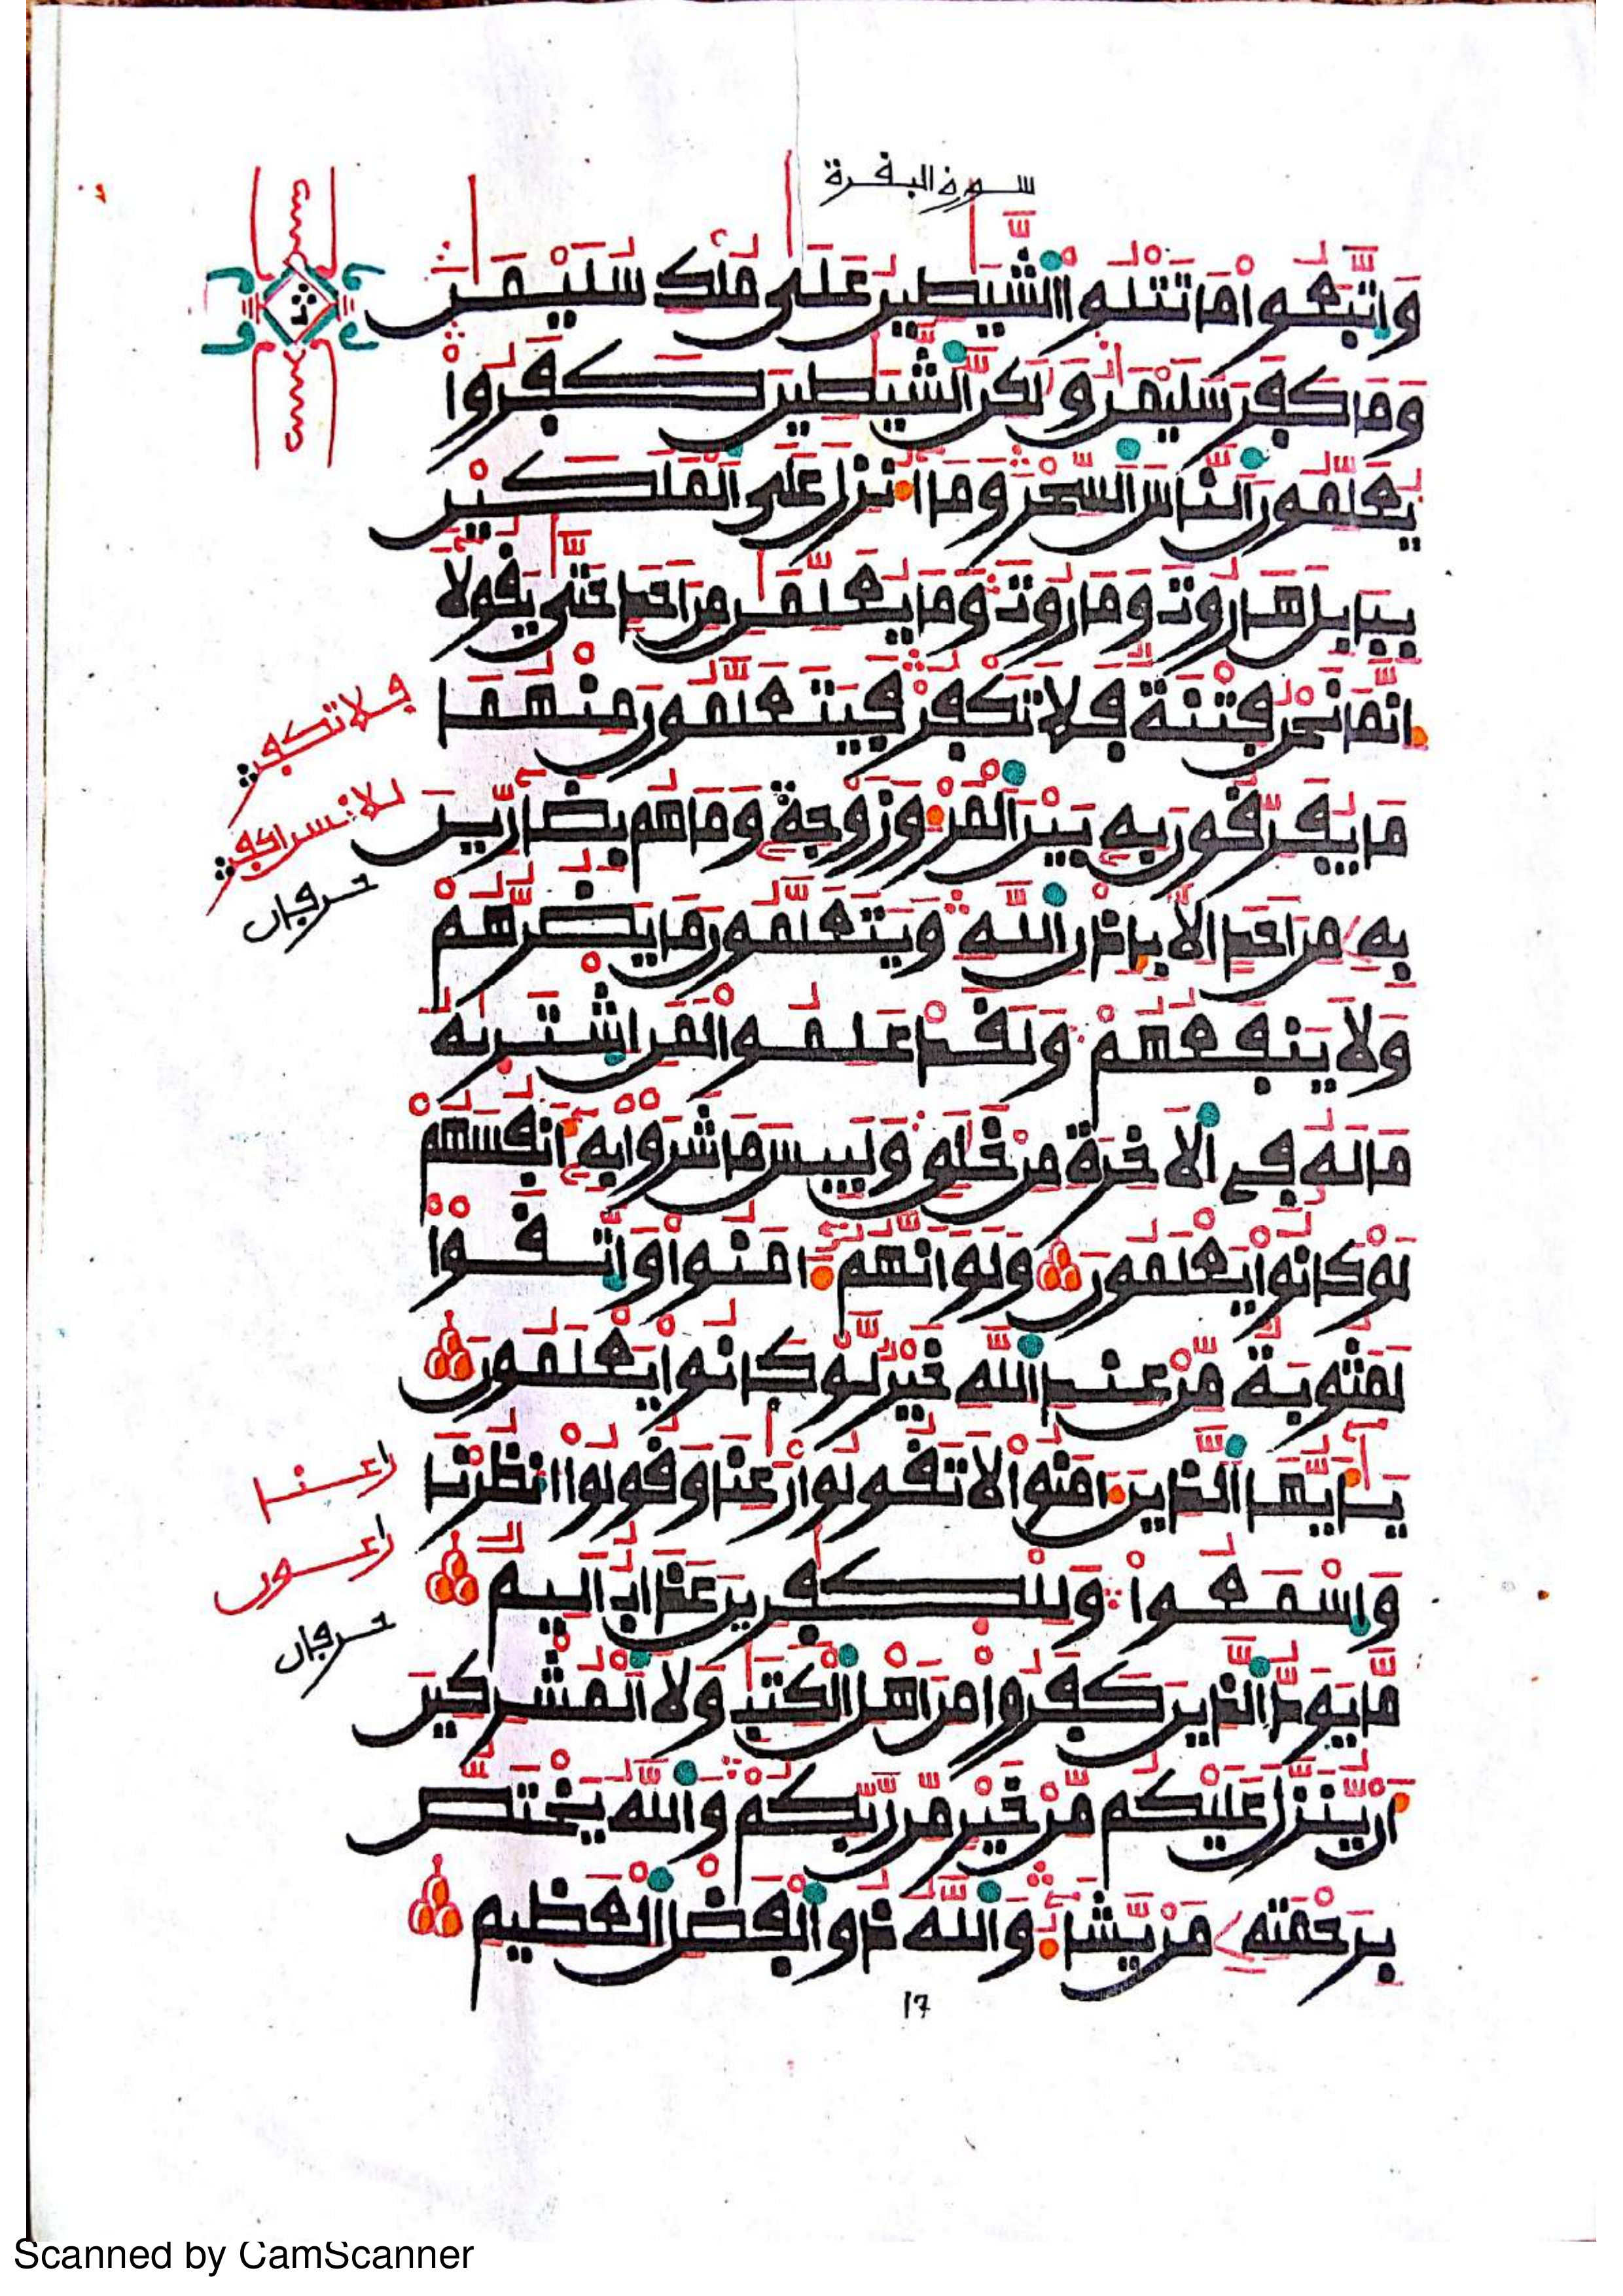 سورة البقرة
وَاتَّبَعُوا مَا تَتْلُوا الشَّيَٰطِينُ عَلَىٰ مُلْكِ سُلَيْمَٰنَ
وَمَا كَفَرَ سُلَيْمَٰنُ وَلَٰكِنَّ الشَّيَٰطِينَ كَفَرُوا
يُعَلِّمُونَ النَّاسَ السِّحْرَ وَمَا أُنزِلَ عَلَى الْمَلَكَيْنِ
بِبَابِلَ هَارُوتَ وَمَارُوتَ وَمَا يُعَلِّمَٰنِ مِنْ أَحَدٍ حَتَّىٰ يَقُولَا
إِنَّمَا نَحْنُ فِتْنَةٌ فَلَا تَكْفُرْ فَيَتَعَلَّمُونَ مِنْهُمَا
مَا يُفَرِّقُونَ بِهِ بَيْنَ الْمَرْءِ وَزَوْجِهِ وَمَا هُم بِضَارِّينَ
بِهِ مِنْ أَحَدٍ إِلَّا بِإِذْنِ اللَّهِ وَيَتَعَلَّمُونَ مَا يَضُرُّهُمْ
وَلَا يَنفَعُهُمْ وَلَقَدْ عَلِمُوا لَمَنِ اشْتَرَىٰهُ
مَا لَهُ فِي الْآخِرَةِ مِنْ خَلَٰقٍ وَلَبِيسَ مَا شَرَوْا بِهِ أَنفُسَهُمْ
لَوْ كَانُوا يَعْلَمُونَ وَلَوْ أَنَّهُمْ ءَامَنُوا وَاتَّقَوْا
لَمَثُوبَةٌ مِّنْ عِندِ اللَّهِ خَيْرٌ لَّوْ كَانُوا يَعْلَمُونَ
يَٰأَيُّهَا الَّذِينَ ءَامَنُوا لَا تَقُولُوا رَٰعِنَا وَقُولُوا انظُرْنَا
وَاسْمَعُوا وَلِلْكَٰفِرِينَ عَذَابٌ أَلِيمٌ
مَّا يَوَدُّ الَّذِينَ كَفَرُوا مِنْ أَهْلِ الْكِتَٰبِ وَلَا الْمُشْرِكِينَ
أَن يُنَزَّلَ عَلَيْكُم مِّنْ خَيْرٍ مِّن رَّبِّكُمْ وَاللَّهُ يَخْتَصُّ
بِرَحْمَتِهِ مَن يَشَاءُ وَاللَّهُ ذُو الْفَضْلِ الْعَظِيمِ
فلا تكفر
للانسن اكفر
حرفان
راعنا
راعون
حرفان
17
Scanned by CamScanner